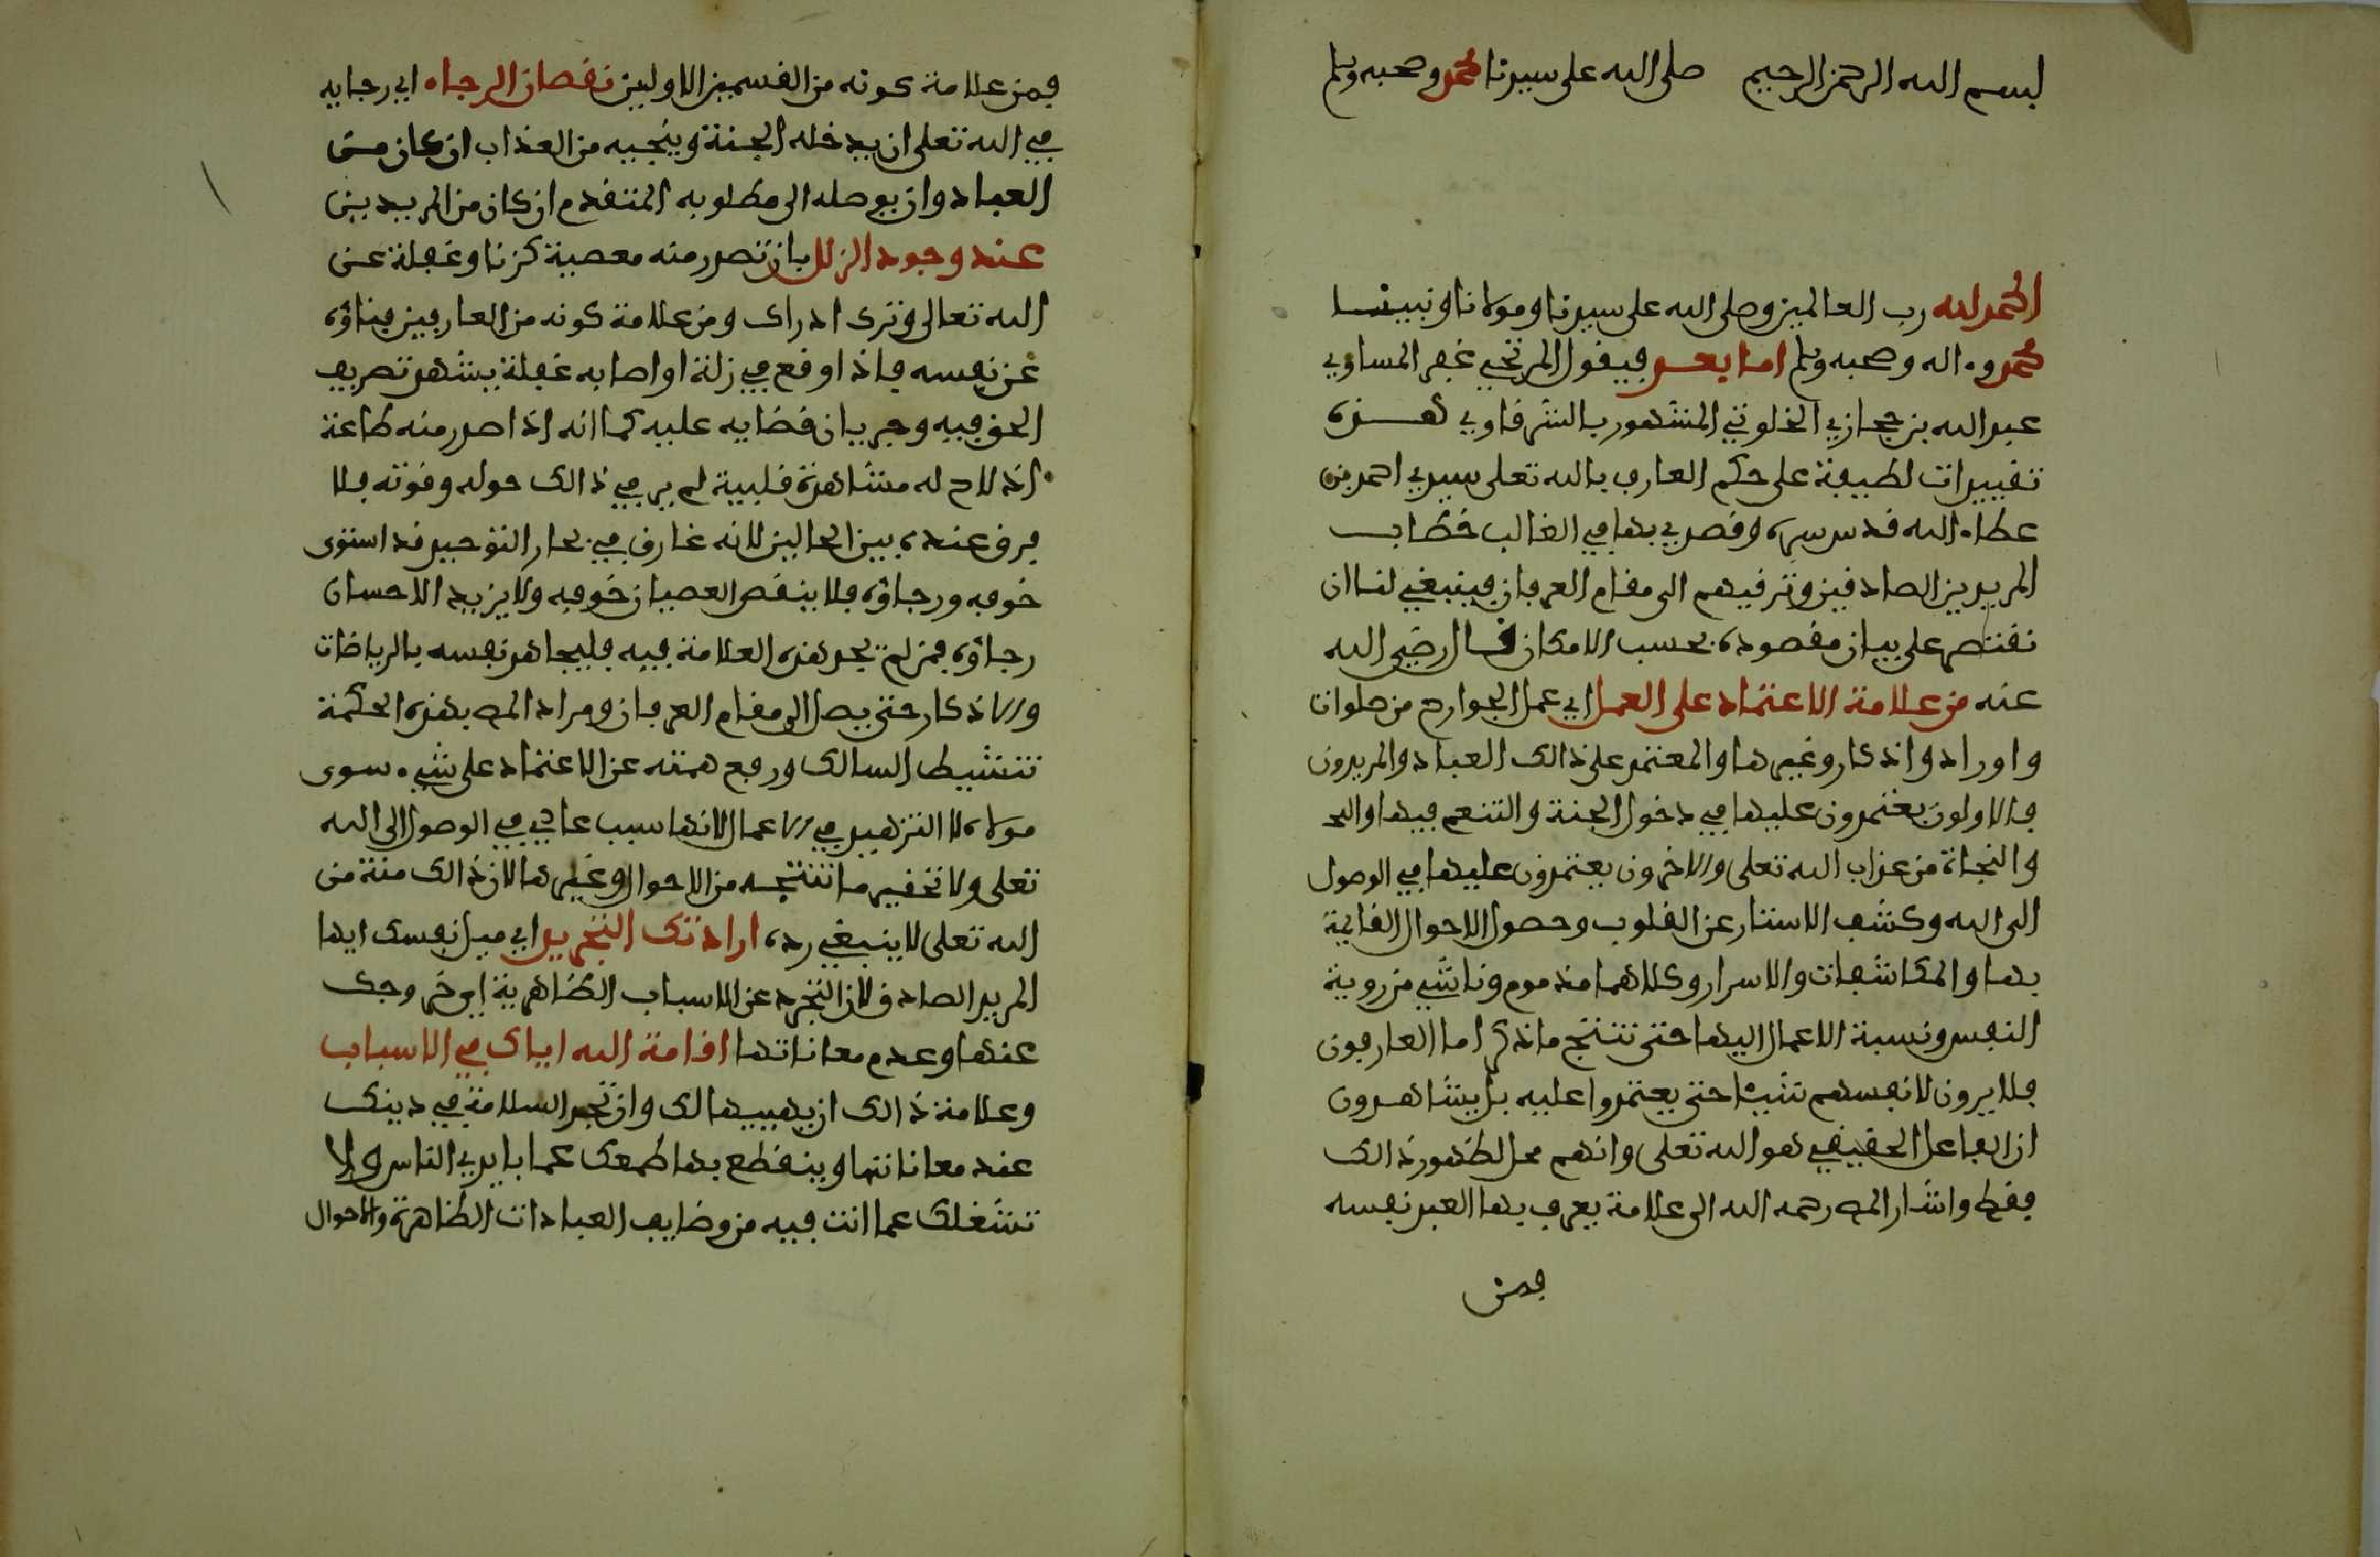 بسم الله الرحمن الرحيم صلى الله على سيدنا محمد وصحبه وسلم
الحمد لله رب العالمين وصلى الله على سيدنا ومولانا ونبينا
محمد وءاله وصحبه وسلم اما بعد فيقول المرتجي غفر المساوي
عبد الله بن حجازي الخلوتي المشهور بالشرقاوي هذه
تقييدات لطيفة على حكم العارف بالله تعلى سيدي احمد بن
عطاء الله قدس سره وقصدي بها في الغالب خطاب
المريدين الصادقين وترقيهم الى مقام العرفان فينبغي لنا ان
نقتصر على بيان مقصوده بحسب الامكان قال رضي الله
عنه من علامة الاعتماد على العمل اي عمل الجوارح من صلوات
واوراد واذكار وغيرها والمعتمد على ذالك العباد والمريدون
فالاولون يعتمدون عليها في دخول الجنة والتنعم فيها
والنجاة من عذاب الله تعلى والاخرون يعتمدون عليها في الوصول
الى الله وكشف الاستار عن القلوب وحصول الاحوال القايمة
بها والمكاشفات والاسرار وكلاهما مذموم وناشي من روية
النفس ونسبة الاعمال اليها حتى تنتج ما ذكر اما العارفون
فلا يرون لانفسهم شيئا حتى يعتمدوا عليه بل يشاهدون
ان الفاعل الحقيقي هو الله تعلى وانهم محل لظهور ذالك
فقط واشار المص رحمه الله الى علامة يعرف بها العبد نفسه
فمن
فمن علامة كونه من القسمين الاولين نقصان الرجاء اي رجايه
في الله تعلى ان يدخله الجنة وينجيه من العذاب ان كان من
العباد وان يوصله الى مطلوبه المتقدم ان كان من المريدين
عند وجود الزلل بان تصدر منه معصية كزنا وغفلة عن
الله تعالى وترى ادراك ومن علامة كونه من العارفين فناؤه
عن نفسه فاذا وقع في زلة او اصابه غفلة يشهد تصريف
الحق فيه وجريان قضايه عليه كما انه اذا صدر منه طاعة
اذ لاح له مشاهدة قلبية لم ير في ذالك حوله وقوته فلا
فرق عنده بين الحالين لانه غارق في بحار التوحيد قد استوى
خوفه ورجاؤه فلا ينقص العصيان خوفه ولا يزيد الاحسان
رجاؤه فمن لم يجد هذه العلامة فيه فليجاهد نفسه بالرياضات
والاذكار حتى يصل الى مقام العرفان ومراد المص بهذه الحكمة
تنشيط السالك ورفع همته عن الاعتماد على شيء سوى
مولاه لا التزهيد في الاعمال لانها سبب عادي في الوصول الى الله
تعلى ولا تحقير ما تنتجه من الاحوال وغيرها لان ذالك منة من
الله تعلى لا ينبغي رده ارادتك التجريد اي ميل نفسك ايها
المريد الصادق لان التجرد عن الاسباب الظاهرية اي خروجك
عنها وعدم معاناتها اقامة الله اياك في الاسباب
وعلامة ذالك ان يهييها لك وان تجد السلامة في دينك
عند معاناتها وينقطع بها طمعك عما بايدي الناس ولا
تشغلك عما انت فيه من وضايف العبادات الظاهرة والاحوال